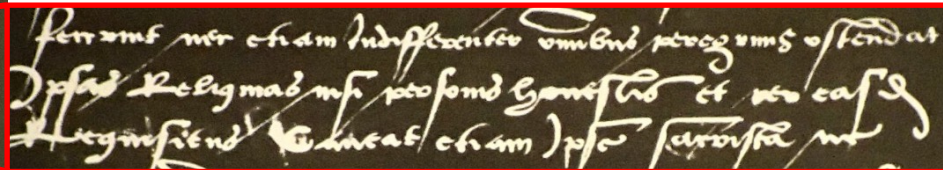 fecerunt nec etiam Indifferenter omnibus peregrinis ostendat
Ipsas Reliquias nisi personis honestis et per easd
Requisitus Caveat etiam Ipse sacrista ne